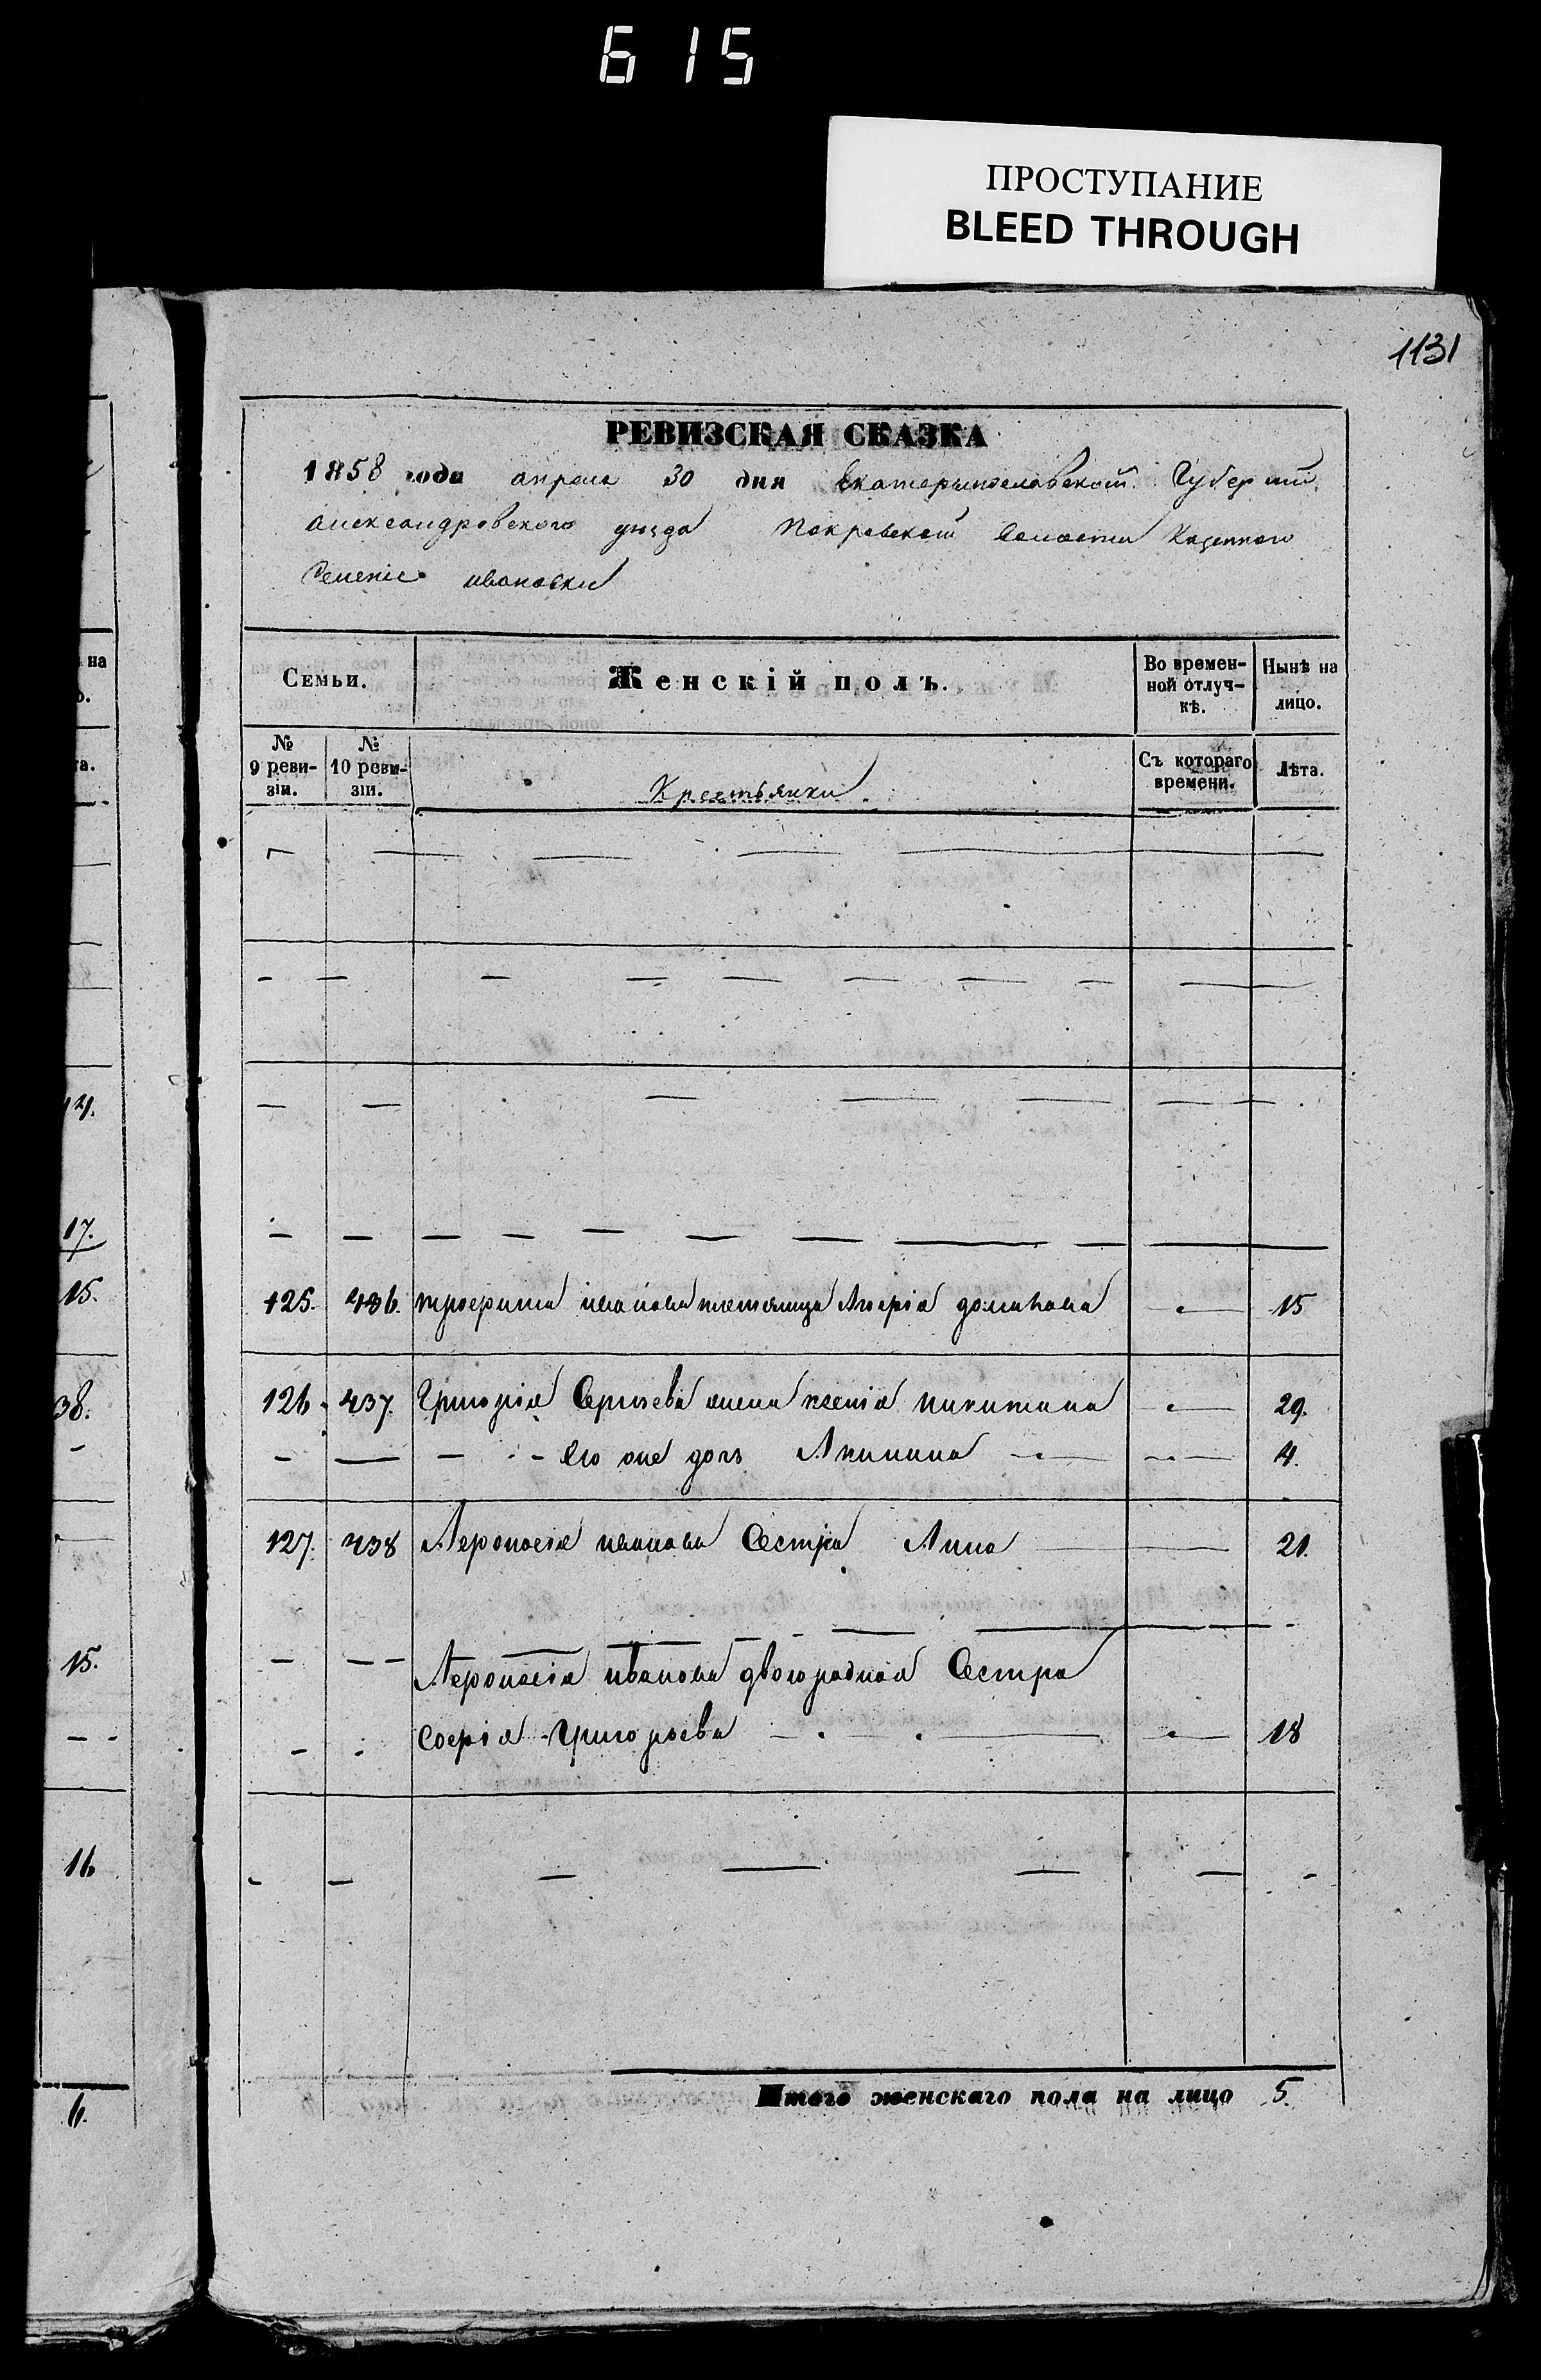 615
ПРОСТУПАНИЕ
BLEED THROUGH
1131
РЕВИЗСКАЯ СКАЗКА
1858 года апреля 30 дня Екатеринославской Губернии
Александровского уезда Покровской Волости Казенного
Селенiе Ивановки
Семьи.
Женскій полъ.
Во времен-
ной отлуч-
кѣ.
Нынѣ на
лицо.
№
9 реви-
зіи.
№
10 реви-
зіи.
Крестьянки
Съ котораго
времени.
Лѣта.
125. 436. трофима иванова 15
126. 437. Григорія Сергѣева жена ксенія никитина 29.
его же дочь Акилина 4.
127. 438 Афонасія иванова Сестра Анна 21.
Афонасія иванова двоюродная Сестра
софія Григорьева 18
Итого женскаго пола на лицо 5.
на
о.
та.
14.
17.
15.
38.
15.
16
6.